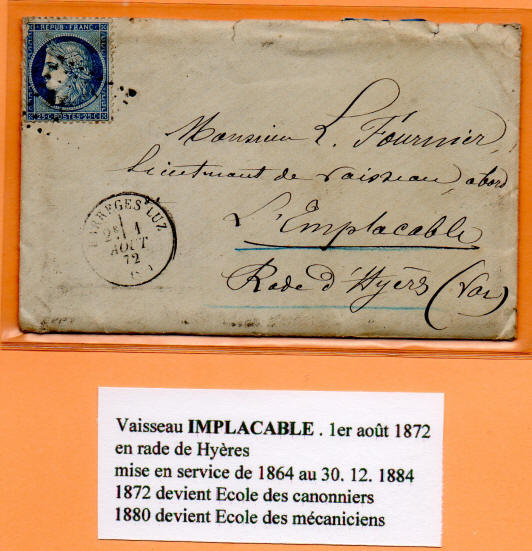 REPUB·FRANC·
25·C·POSTES·25·C
Monsieur L. Fournier,
Lieutenant de vaisseau, abord
L'Implacable
Rade d'Hyères (Var)
BARREGES LUZ
1
2E 1
AOUT
72
Vaisseau IMPLACABLE . 1er août 1872
en rade de Hyères
mise en service de 1864 au 30. 12. 1884
1872 devient Ecole des canonniers
1880 devient Ecole des mécaniciens